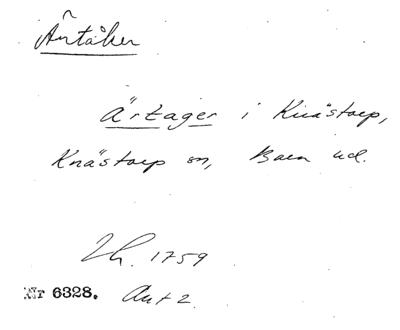 Ärtåker
Ärtager i Knästorp,
Knästorp sn, Bara hd.
Lh. 1759
Nr 6328. Avt 2.